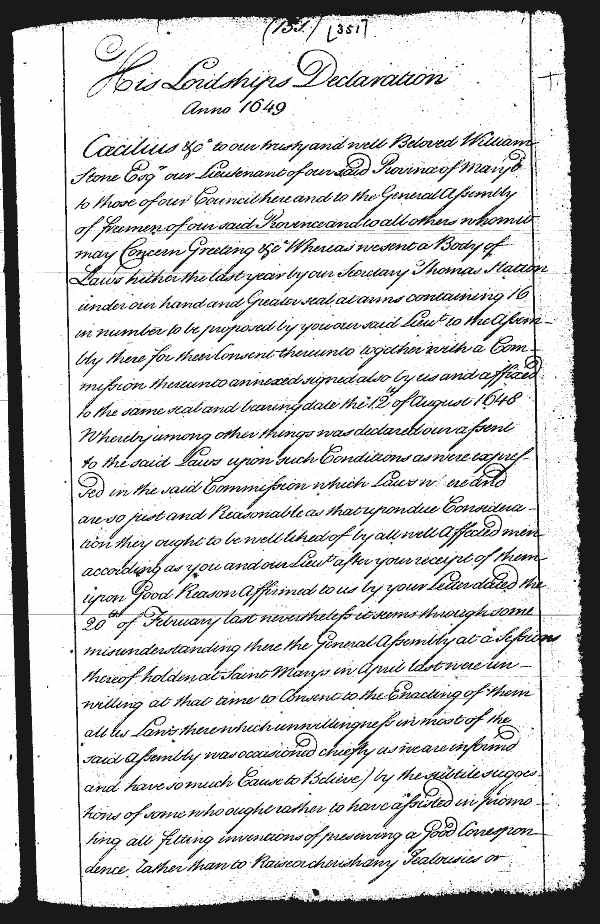 (151) [351]
His Lordships Declaration
Anno 1649
Cæcilius &c.ª to our trusty and well Beloved William
Stone Esq.r our Lieutenant of our said Province of Mary.d
to those of our Council here and to the General Assembly
of freemen of our said Province and to all others whom it
may Concern Greeting &c.ª Whereas we sent a Body of
Laws hither the last year by our Secretary Thomas Hatton
under our hand and Greater seal at arms containing 16
in number to be proposed by you our said Lieu.t to the Assem-
bly there for their Consent thereunto together with a Com-
mission thereunto annexed signed also by us and affixed
to the same seal and bearing date the 12.th of August 1648
Whereby among other things was declared our assent
to the said Laws upon such Conditions as were expres
sed in the said Commission which Laws w ere and
are so just and Reasonable as that upon due Considera-
tion they ought to be well liked of by all well Affected men
according as you and our Lieu.t after your receipt of them
upon Good Reason Affirmed to us by your Letter dated the
20th of February last nevertheless it seems through some
misunderstanding there the General Assembly at a Sessions
thereof holden at Saint Marys in April last were un-
willing at that time to Consent to the Enacting of them
all as Laws there which unwillingness in most of the
said Assembly was occasioned chiefly as we are informd
and have so much Cause to Believe) by the subtile sugges-
tions of some who ought rather to have assisted in promo-
ting all fitting inventions of preserving a Good Correspon-
dence rather than to Raise or cherish any Jealousies or